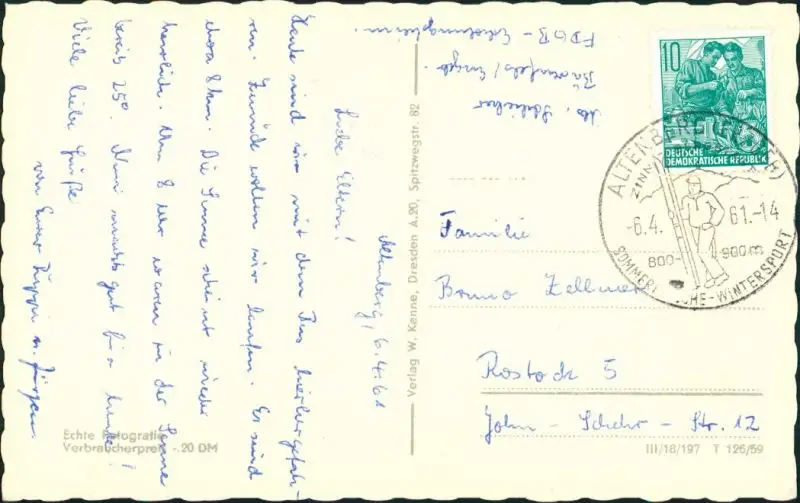 Altenberg, 6.4.61
Liebe Eltern!
Heute sind wir mit dem Bus hierhergefah-
ren. Zurück wollen wir laufen. Es sind
etwa 8 km. Die Sonne scheint wieder
herrlich. Um 8 Uhr waren in der Sonne
bereits 25°. Nun macht's gut für heute!
Viele liebe Grüße
von Eurer und Jürgen
FDGB-Erholungsheim
Bärenfels/Erzgeb.
Familie
Bruno Zellmer
Rostock 5
John-Schehr-Str. 12
10
DEUTSCHE
DEMOKRATISCHE REPUBLIK
ALTENBERG
-6.4.61.-14
800-900m
SOMMERFRISCHE-WINTERSPORT
Verlag W. Kenne, Dresden A.20, Spitzwegstr. 82
Echte Fotografie
Verbraucherpreis -.20 DM
III/18/197 T 125/59